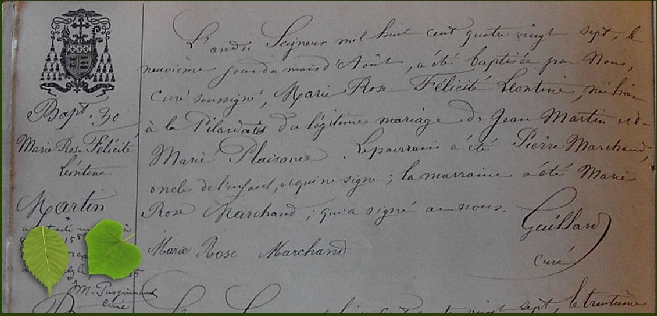 Bapt. 30
Marie Rose Félicité
Léontine
Martin
L'an du Seigneur mil huit cent quatre vingt sept, le
neuvième jour du mois d'Août, a été baptisée par Nous,
Curé soussigné, Marie Rose Félicité Léontine, née hier
à la Pilardais du légitime mariage de Jean Martin et de
Marie Plaisance. Le parrain a été Pierre Marchand,
oncle de l'enfant, et qui ne signe; la marraine a été Marie
Rose Marchand, qui a signé avec nous.
Marie Rose Marchand
Guillard
curé
vingt sept, le trentième